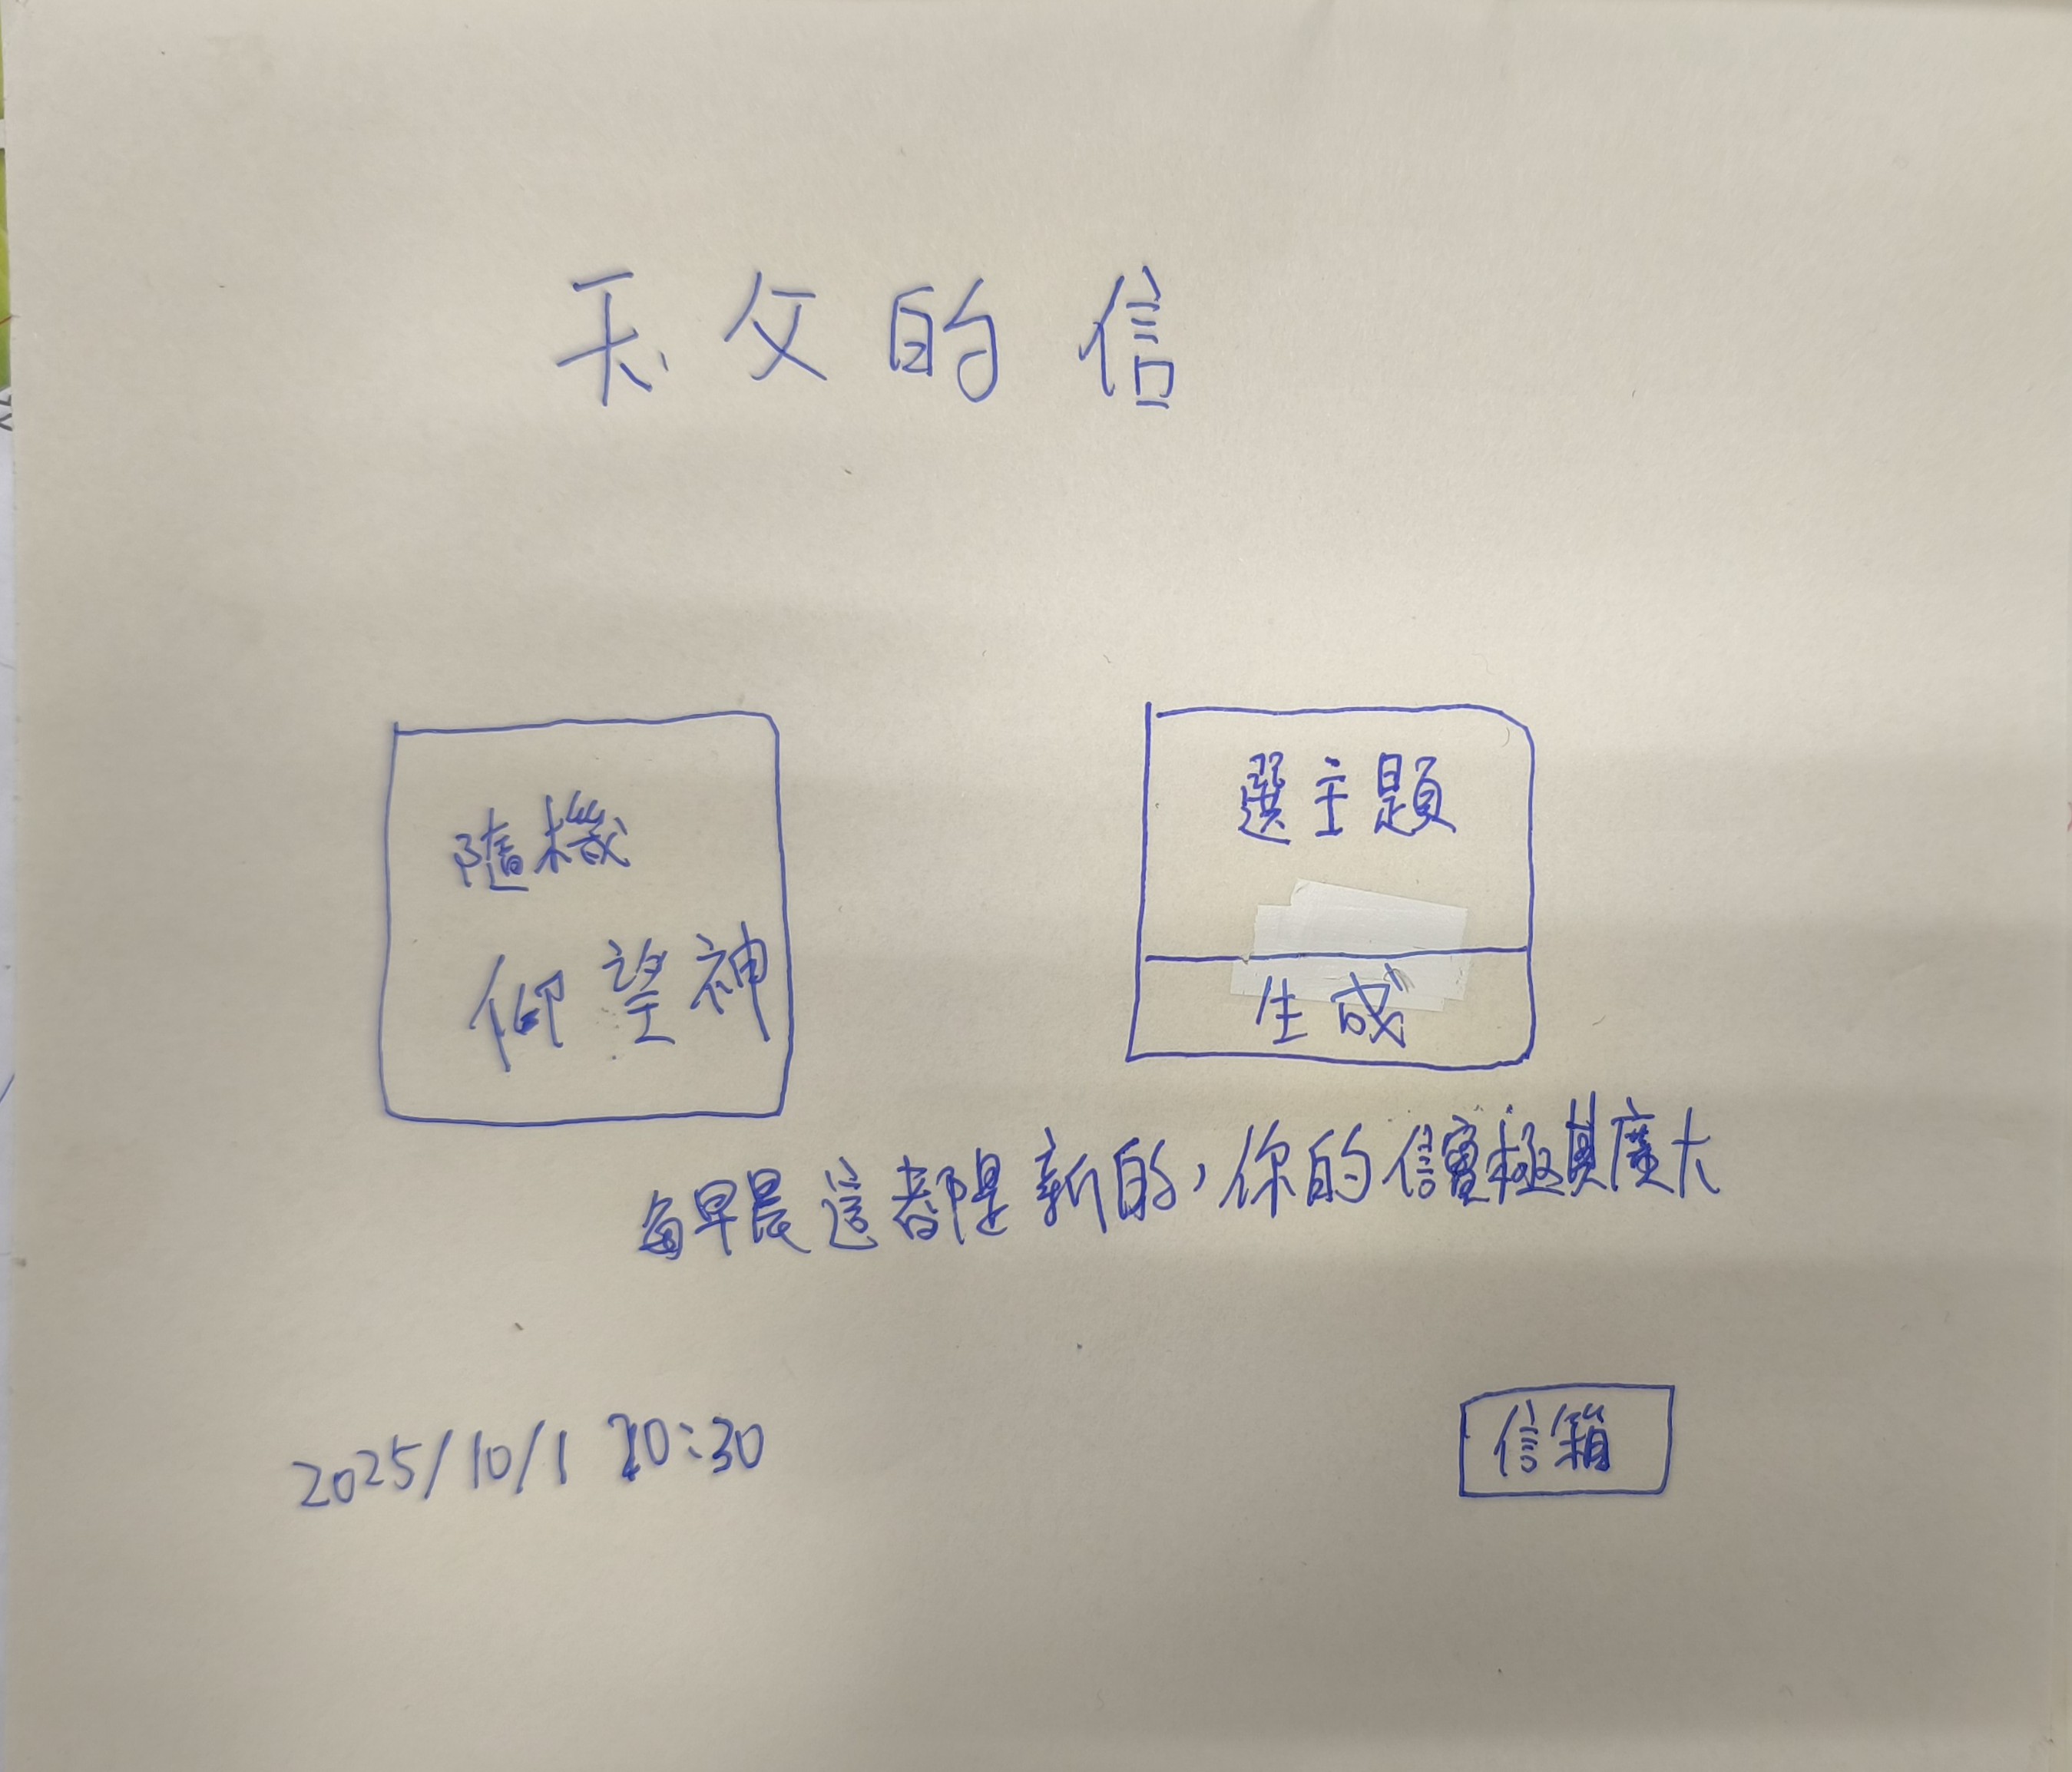 天父的信
隨機
仰望神
選主題
生成
每早晨這都是新的,你的信實極其廣大
2025/10/1 20:30
信箱